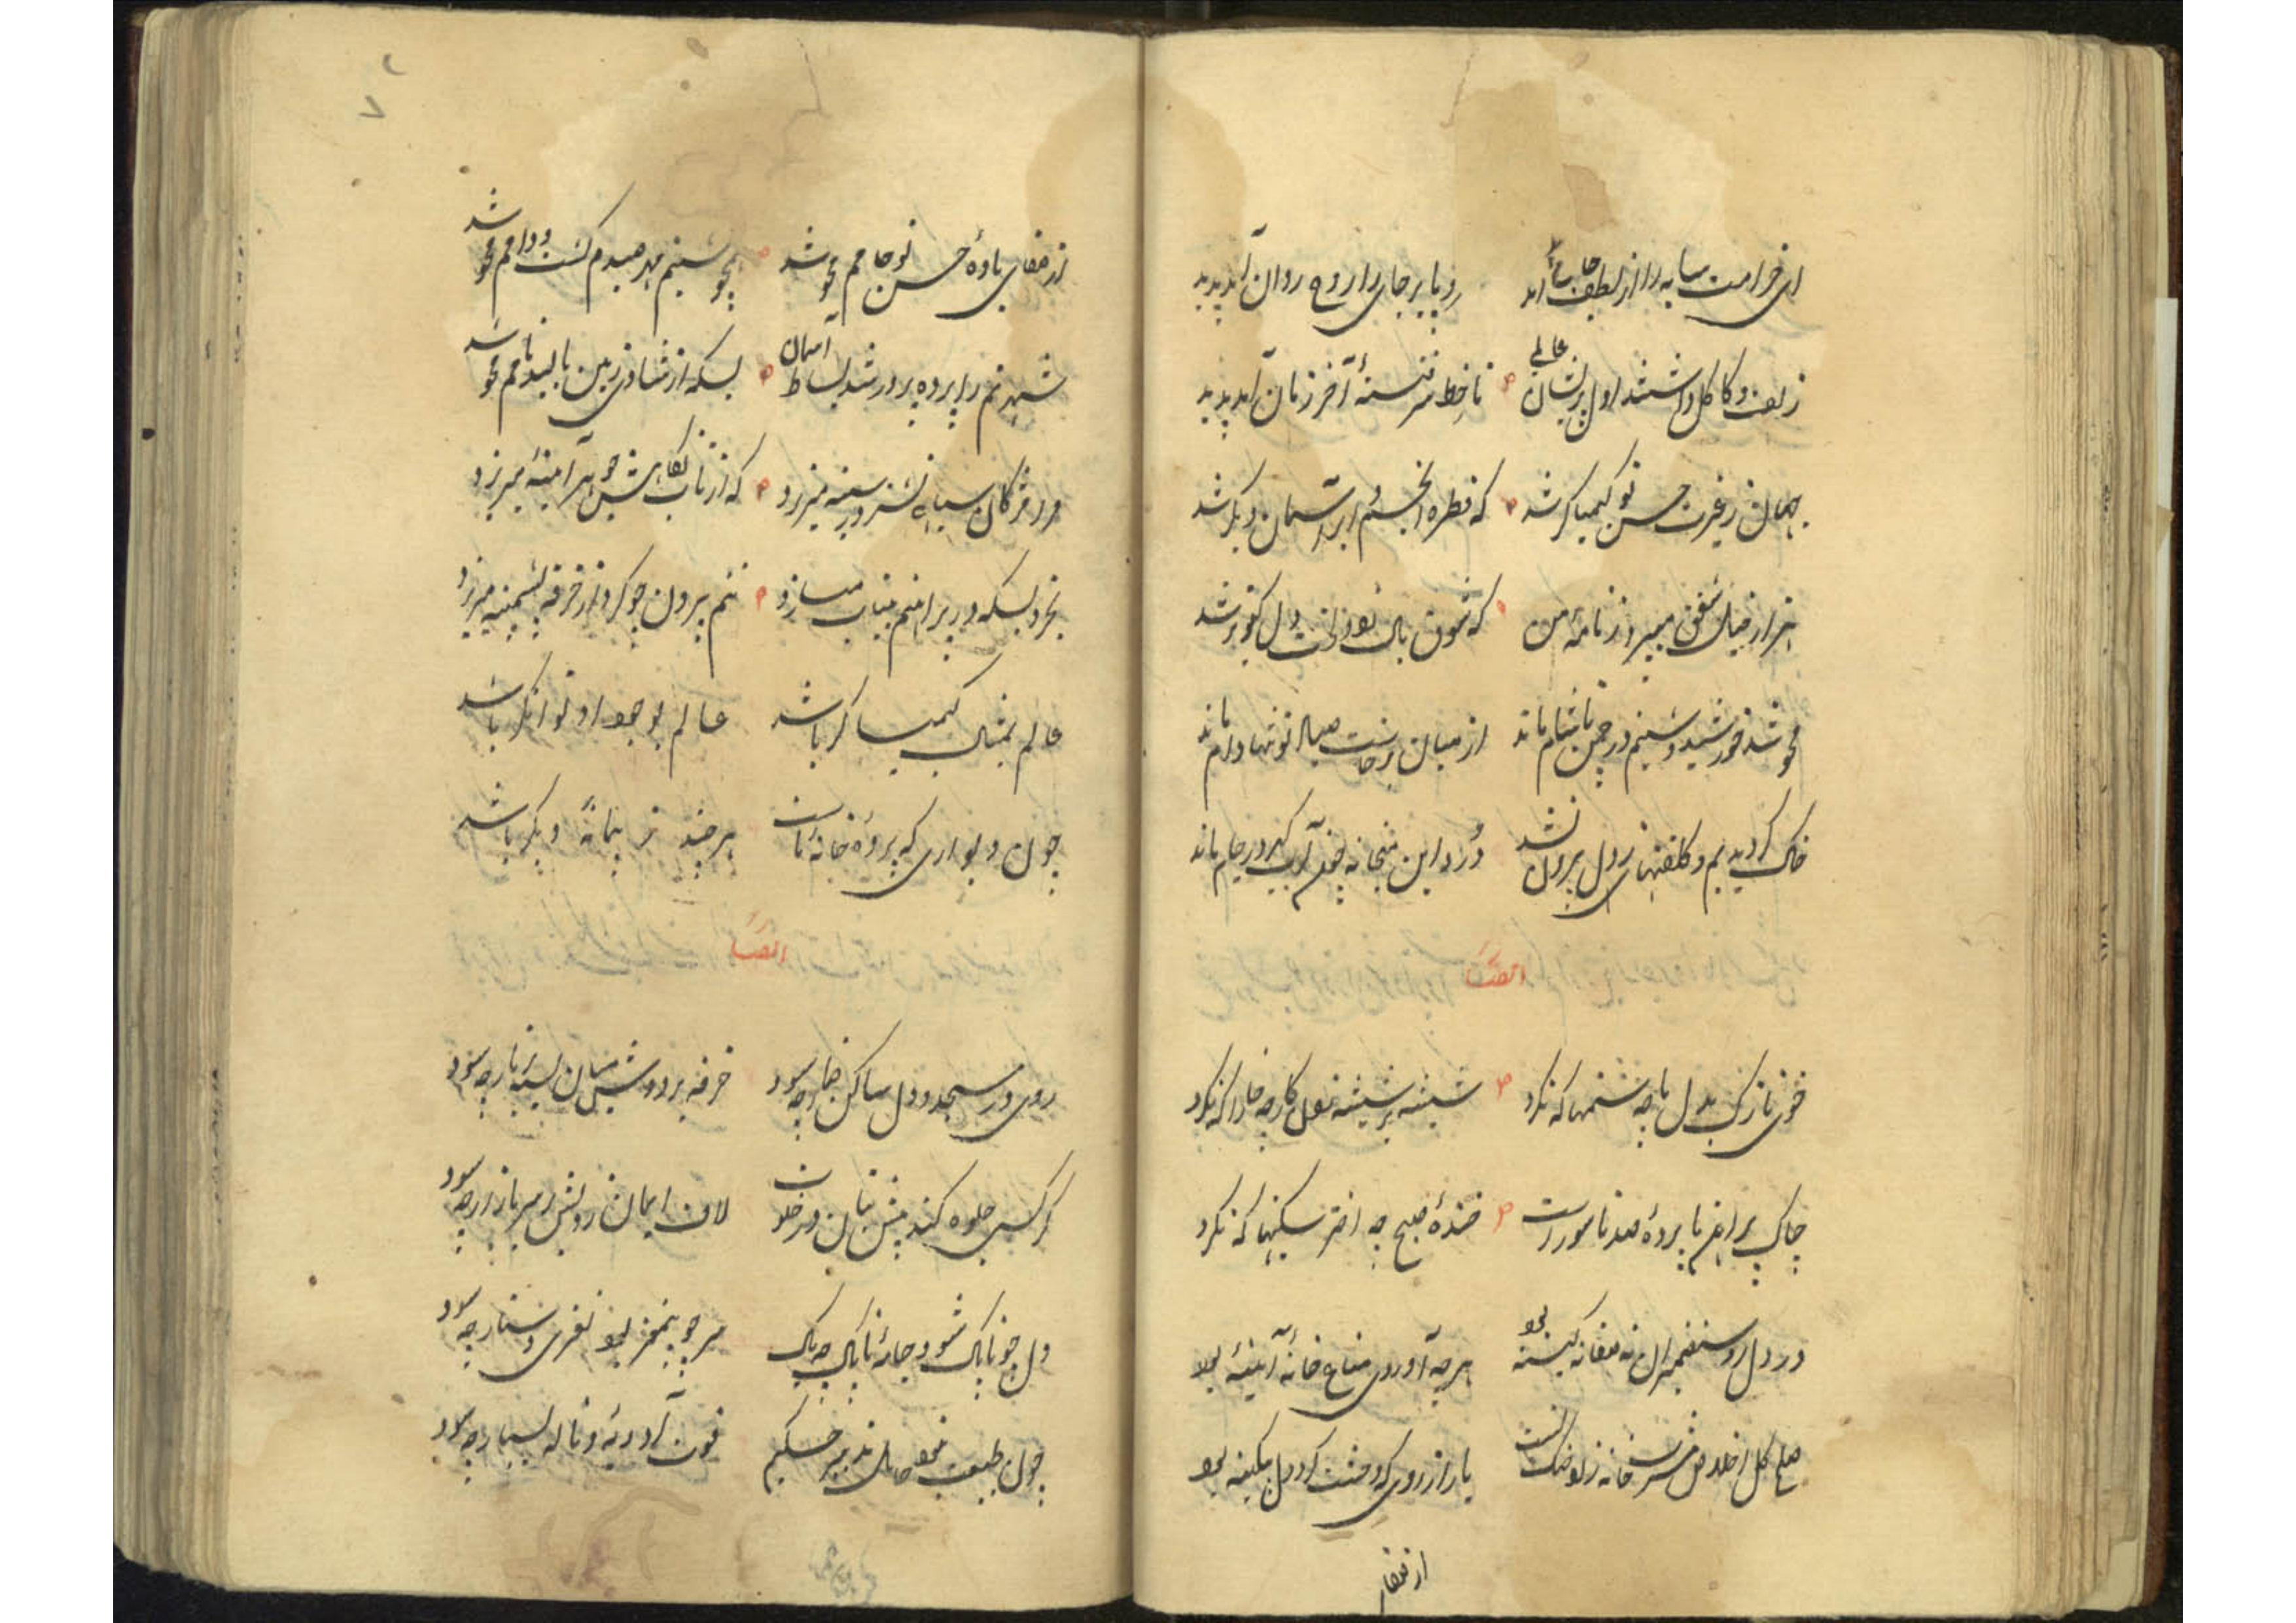 ای خرامت سایه را از لطف جان آمد
رو بابر جای را روح روان آمد پدید
زلف و کاکل داشتند اول پریشان عالمی
تا خط سر فتنهٔ آخر زمان آمد پدید
جهان ز غیرت حسن تو کیمیاگر شد
که قطره انجم و ابر آسمان دیگر شد
هزار خیال شفق میپرد ز نامهٔ من
که خون بال دل کبوتر شد
محو شد خورشید و شبنم در چمن تا شام ماند
از میان برخاست صیاد تو تنها دام ماند
خاک گردیدیم و کلفتهای دل بیرون نشد
درد این میخانه چون آب گهر در جام ماند
ایضا
خوی نازک بدل ما چه ستمها که نکرد
شیشه بر شیشه کار چه خارا که نکرد
چاک پیراهن ما پردهٔ صد ناسور است
خندهٔ صبح چه اختر شکنیها که نکرد
در دل روشنضمیران نه صفا نه کینه بود
هرچه آوردی متاع خانهٔ آیینه بود
صلح کل اخلاص مشرب خانه زاد
یار از روی که وحشت کرد دل بی کینه بود
از صفا
از صفای بادهٔ حسن تو جامم محو شد
همچو شبنم مهر صیدم گشت و دامم محو شد
شهرتم را پرده پرور شد بساط آسمان
بسکه از شادی نگین بالید نامم محو شد
در مژگان سیاهی نشتر در سینه میریزد
که از تاب نگاهش جوهر آیینه میریزد
تجرد بسکه در پیراهنم بیتاب میسازد
تنم بیرون چو کرد از خرقه پشمینه میریزد
عالم بمثال کیمیاگر باشد
عالم بوجود او توانگر باشد
چون دیواری که پردهٔ خانهٔ ماست
هر چند ز بیمانهٔ دیگر باشد
ایضا
روی در مسجد و دل ساکن خمار چه سود
خرقه بر دوش میان بسته بزنار چه سود
گر کسی جلوه کند پیش بتان در خلوت
لاف ایمان زدنش بر سر بازار چه سود
دل چو ناپاک شود جامهٔ ناپاک چه باک
سر چو بیمغز بود نغزی دستار چه سود
چون طبیعت نبود قابل تدبیر حکیم
قوت ادویه و ناله بسیار چه سود